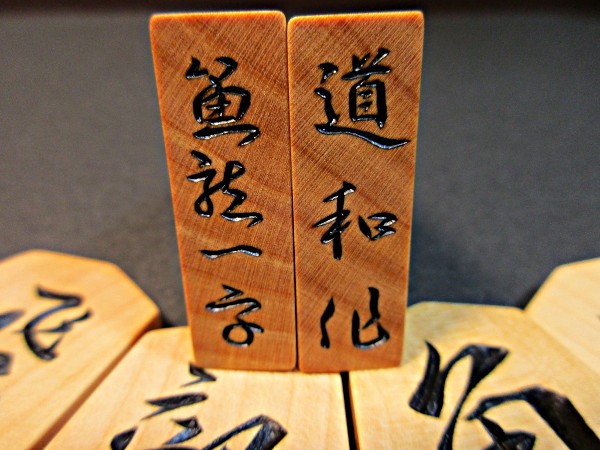 道和作
魚龍一字